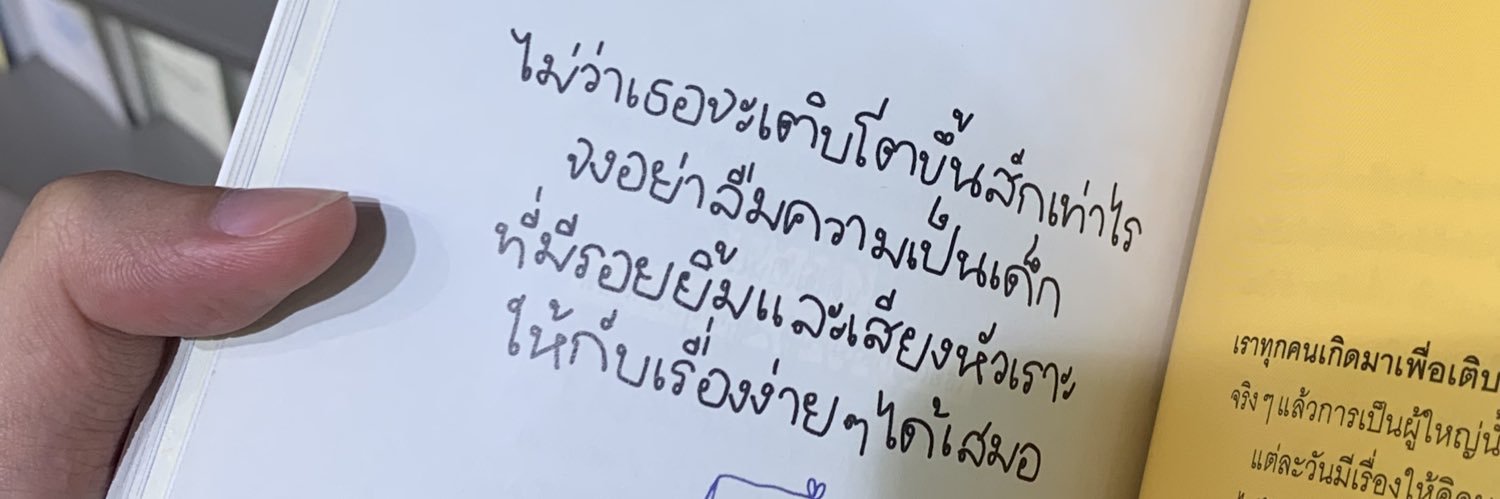 ไม่ว่าเธอจะเติบโตขึ้นสักเท่าไร
จงอย่าลืมความเป็นเด็ก
ที่มีรอยยิ้มและเสียงหัวเราะ
ให้กับเรื่องง่ายๆได้เสมอ
เราทุกคนเกิดมาเพื่อเติบ
จริงๆแล้วการเป็นผู้ใหญ่นั้
แต่ละวันมีเรื่องให้